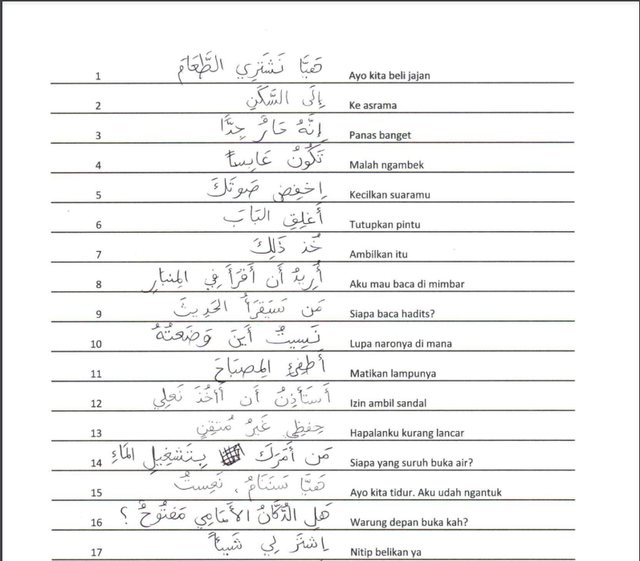 1 هَيَّا نَشْتَرِي الطَّعَامَ Ayo kita beli jajan
2 إِلَى السَّكَنِ Ke asrama
3 إِنَّهُ حَارٌّ جِدًّا Panas banget
4 تَكُونُ عَابِسًا Malah ngambek
5 اِخْفِضْ صَوتَكَ Kecilkan suaramu
6 أَغْلِقِ البَابَ Tutupkan pintu
7 خُذ ذَلِكَ Ambilkan itu
8 أُرِيدُ أَن أَقْرَأَ فِي المِنبَارِ Aku mau baca di mimbar
9 مَن سَيَقرَأُ الحَدِيثَ Siapa baca hadits?
10 نَسِيتُ أَينَ وَضَعتُهُ Lupa naronya di mana
11 أَطفِئِ المِصبَاحَ Matikan lampunya
12 أَستَأذِنُ أَن أَأخُذَ نَعلِي Izin ambil sandal
13 حِفظِي غَيرُ مُتقِنٍ Hapalanku kurang lancar
14 مَن أَمَرَكَ بِتَشغِيلِ المَاءِ Siapa yang suruh buka air?
15 هَيَّا سَنَنَامُ، نَعِستُ Ayo kita tidur. Aku udah ngantuk
16 هَلِ الدُّكَّانُ الأَمَامِي مَفتُوحٌ ؟ Warung depan buka kah?
17 اِشتَرِ لِي شَيئًا Nitip belikan ya